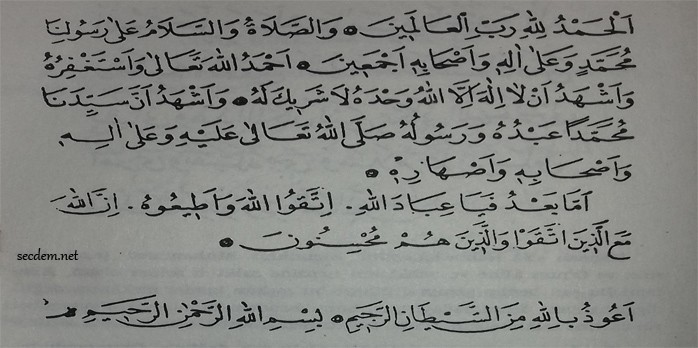 اَلْحَمْدُ لِلّٰهِ رَبِّ الْعَالَمِينَ • وَالصَّلَاةُ وَالسَّلَامُ عَلٰى رَسُولِنَا
مُحَمَّدٍ وَعَلٰى اٰلِهِ وَاَصْحَابِهِ اَجْمَعِينَ • اَحْمَدُ اللّٰهَ تَعَالٰى وَاَسْتَغْفِرُهُ
وَاَشْهَدُ اَنْ لَا اِلٰهَ اِلَّا اللّٰهُ وَحْدَهُ لَا شَرِيكَ لَهُ • وَاَشْهَدُ اَنَّ سَيِّدَنَا
مُحَمَّدًا عَبْدُهُ وَرَسُولُهُ صَلَّى اللّٰهُ تَعَالٰى عَلَيْهِ وَعَلٰى اٰلِهِ
وَاَصْحَابِهِ وَاَصْهَارِهِ •
اَمَّا بَعْدُ فَيَا عِبَادَ اللّٰهِ . اِتَّقُوا اللّٰهَ وَاَطِيعُوهُ . اِنَّ اللّٰهَ
مَعَ الَّذِينَ اتَّقَوْا وَالَّذِينَ هُمْ مُحْسِنُونَ •
secdem.net
اَعُوذُ بِاللّٰهِ مِنَ الشَّيْطَانِ الرَّجِيمِ • بِسْمِ اللّٰهِ الرَّحْمٰنِ الرَّحِيمِ